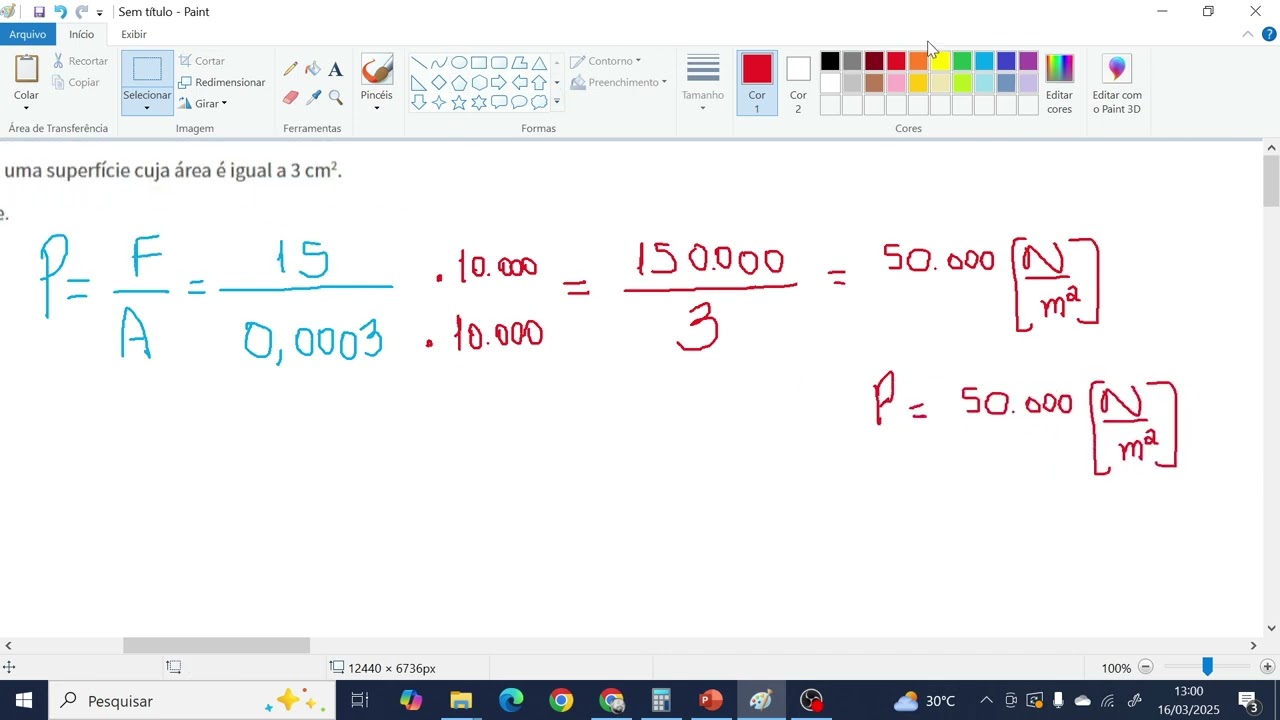 Sem título - Paint
Arquivo Início Exibir
Colar
Recortar
Copiar
Área de Transferência
Selecionar
Cortar
Redimensionar
Girar
Imagem
A
Ferramentas
Pincéis
Formas
Contorno
Preenchimento
Tamanho
Cor 1
Cor 2
Cores
Editar cores
Editar com o Paint 3D
uma superfície cuja área é igual a 3 cm².
e.
P = F/A = 15/0,0003 · 10.000/· 10.000 = 150.000/3 = 50.000 [N/m²]
P = 50.000 [N/m²]
12440 × 6736px
100%
Pesquisar
30°C
13:00
16/03/2025
3